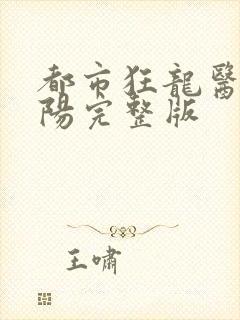 都市狂龍醫
陽完整版
王嘯